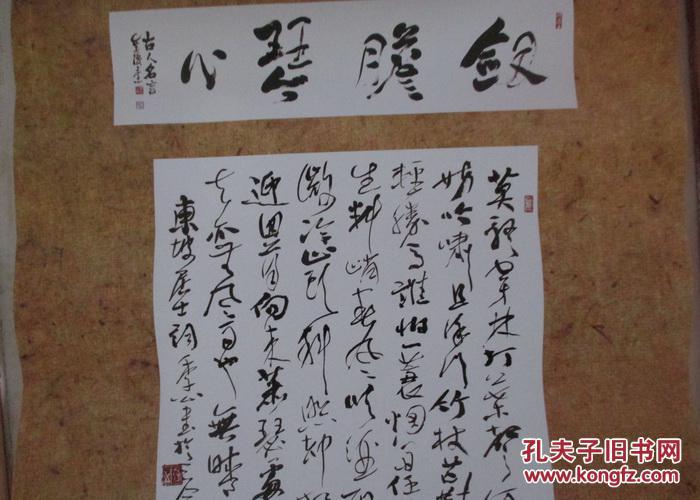 劍膽琴心
古人名言
莫聽穿林打葉聲
妨吟嘯且徐行竹杖芒
輕勝馬誰怕一蓑烟雨任
生料峭春風吹酒
微冷山頭斜照却
迎回首向来蕭瑟處
去亦無風雨也無晴
東坡居士詞
孔夫子旧书网
www.kongfz.com